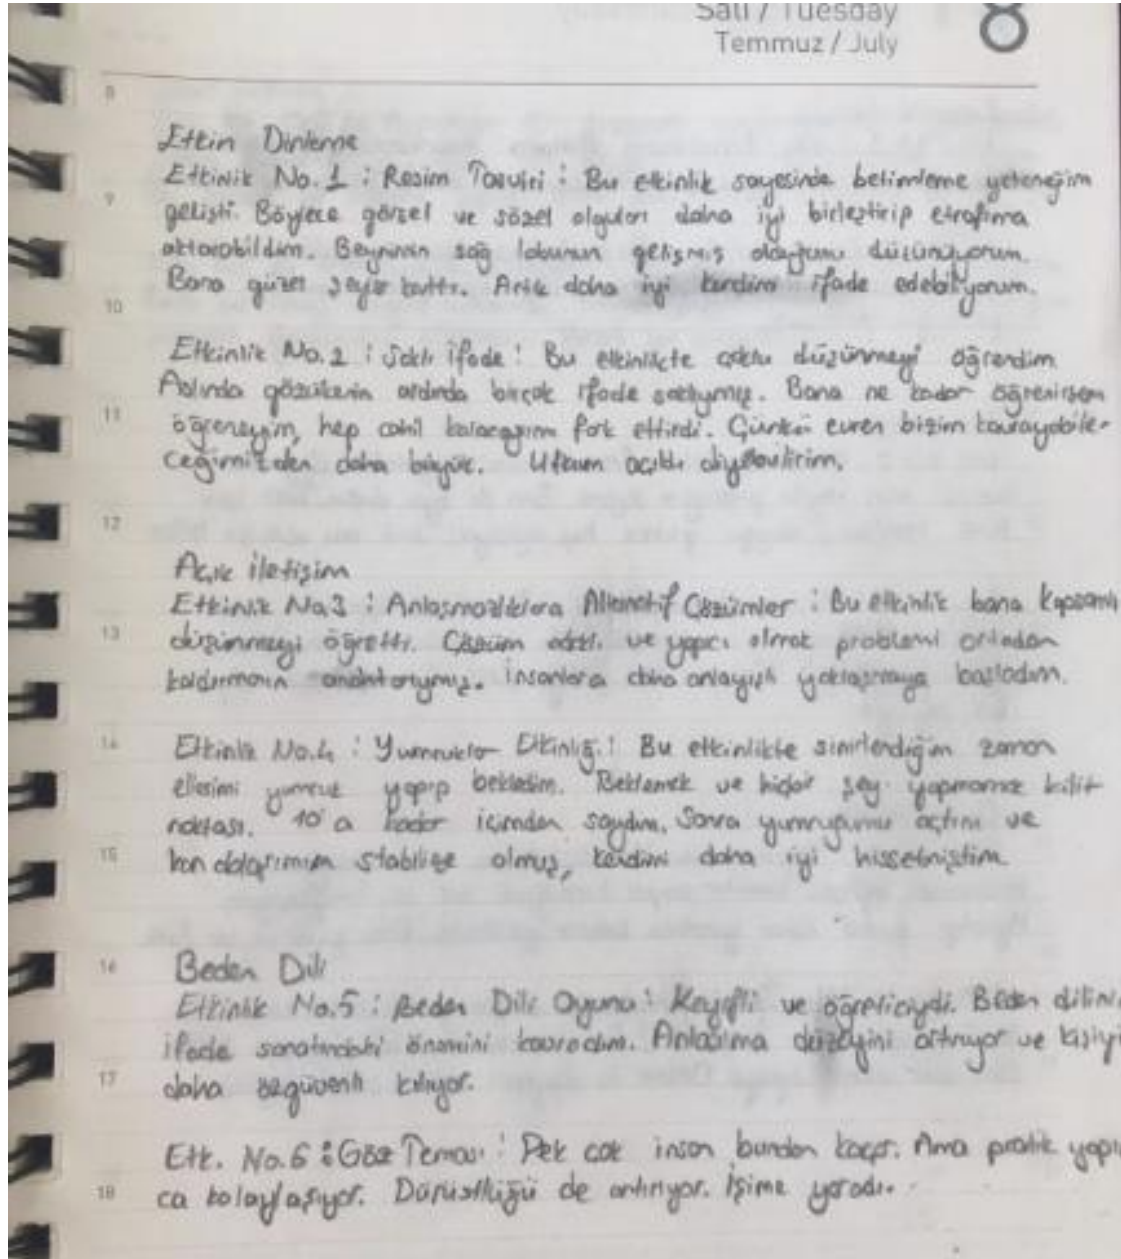 Salı / Tuesday
8
Temmuz / July
8
Etkin Dinleme
Etkinlik No.1 : Resim Tasviri : Bu etkinlik sayesinde betimleme yeteneğim
9
gelişti. Böylece görsel ve sözel olguları daha iyi birleştirip etrafıma
aktarabildim. Beynimin sağ lobunun gelişmiş olduğunu düşünüyorum.
Bana güzel şeyler kattı. Artık daha iyi kendimi ifade edebiliyorum.
10
Etkinlik No.2 : Saklı İfade : Bu etkinlikte çoklu düşünmeyi öğrendim
Aslında gözükenin ardında birçok ifade saklıymış. Bana ne kadar öğrenirsem
11
öğreneyim, hep cahil kalacağımı fark ettirdi. Çünkü evren bizim kavrayabile-
ceğimizden daha büyük. Ufkum açıldı diyebilirim.
12
Açık İletişim
Etkinlik No.3 : Anlaşmazlıklara Alternatif Çözümler : Bu etkinlik bana kapsamlı
13
düşünmeyi öğretti. Çözüm odaklı ve yapıcı olmak problemi ortadan
kaldırmanın anahtarıymış. İnsanlara daha anlayışlı yaklaşmaya başladım.
14
Etkinlik No.4 : Yumruklar Etkinliği : Bu etkinlikte sinirlendiğim zaman
ellerimi yumruk yapıp bekledim. Beklemek ve hiçbir şey yapmamak kilit
noktası. 10'a kadar içimden saydım. Sonra yumruğumu açtım ve
15
kan dolaşımım stabilize olmuş, kendimi daha iyi hissetmiştim
16
Beden Dili
Etkinlik No.5 : Beden Dili Oyunu : Keyifli ve öğreticiydi. Beden dilinin
ifade sanatındaki önemini kavradım. Anlaşılma düzeyini artırıyor ve kişiyi
17
daha özgüvenli kılıyor.
Etk. No.6 : Göz Teması : Pek çok insan bundan kaçar. Ama pratik yapın
18
ca kolaylaşıyor. Dürüstlüğü de artırıyor. İşime yaradı.